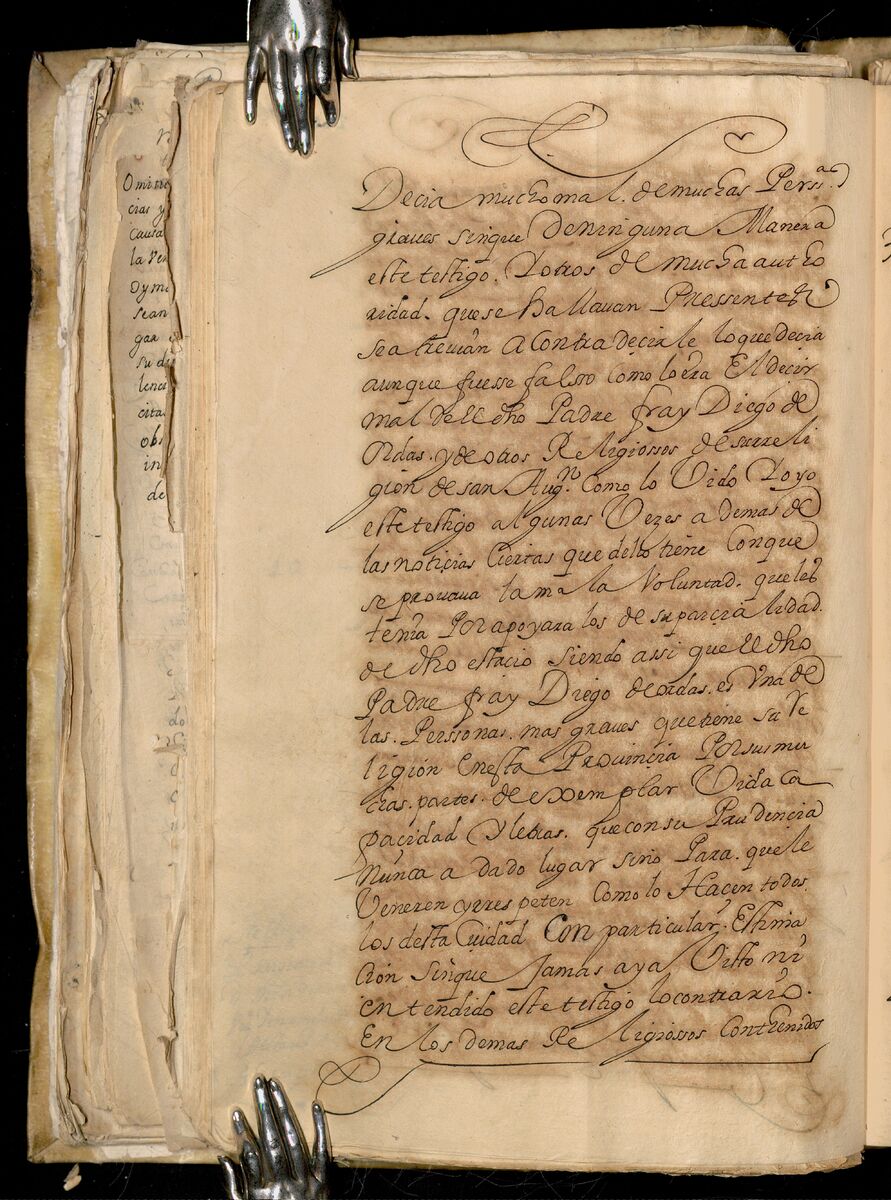 Decia mucho mal. de muchas Perssas.
graves sinque deninguna Manera
este testigo. Y otros de mucha autho
ridad. que se hallavan Pressentes
se atrevian a Contradecirle lo que decia
aunque fuesse falsso como lo era El decir
mal de El dho Padre fray Diego de
Ordas. y de otros Religiossos de su reli
gion de san Augn. Como lo Vido Y oyo
este testigo algunas Vezes a demas de
las noticias Ciertas que dello tiene Conque
se provava la mala Voluntad. que les
tenia Por apoyar a los de su parcialidad.
de dho estacio siendo assi que El dho
Padre fray Diego de ordas. es Vna de
las. Perssonas. mas graves que tiene su Re
ligion En esta Provincia Por sus mu
chas. partes. de exemplar Vida Ca
pacidad Y letras. que con su Prudencia
Nunca a dado lugar sino Para. que le
Veneren y respeten Como lo Hacen todos.
los desta Ciudad Con particular. Estima
cion sinque Jamas aya Visto ni
entendido este testigo lo contrario.
En los demas Religiossos Contenidos
Omitie
cias y
causa
la Ven
Dymi
sean
gar
su di
lenci
cita
obs
in
de